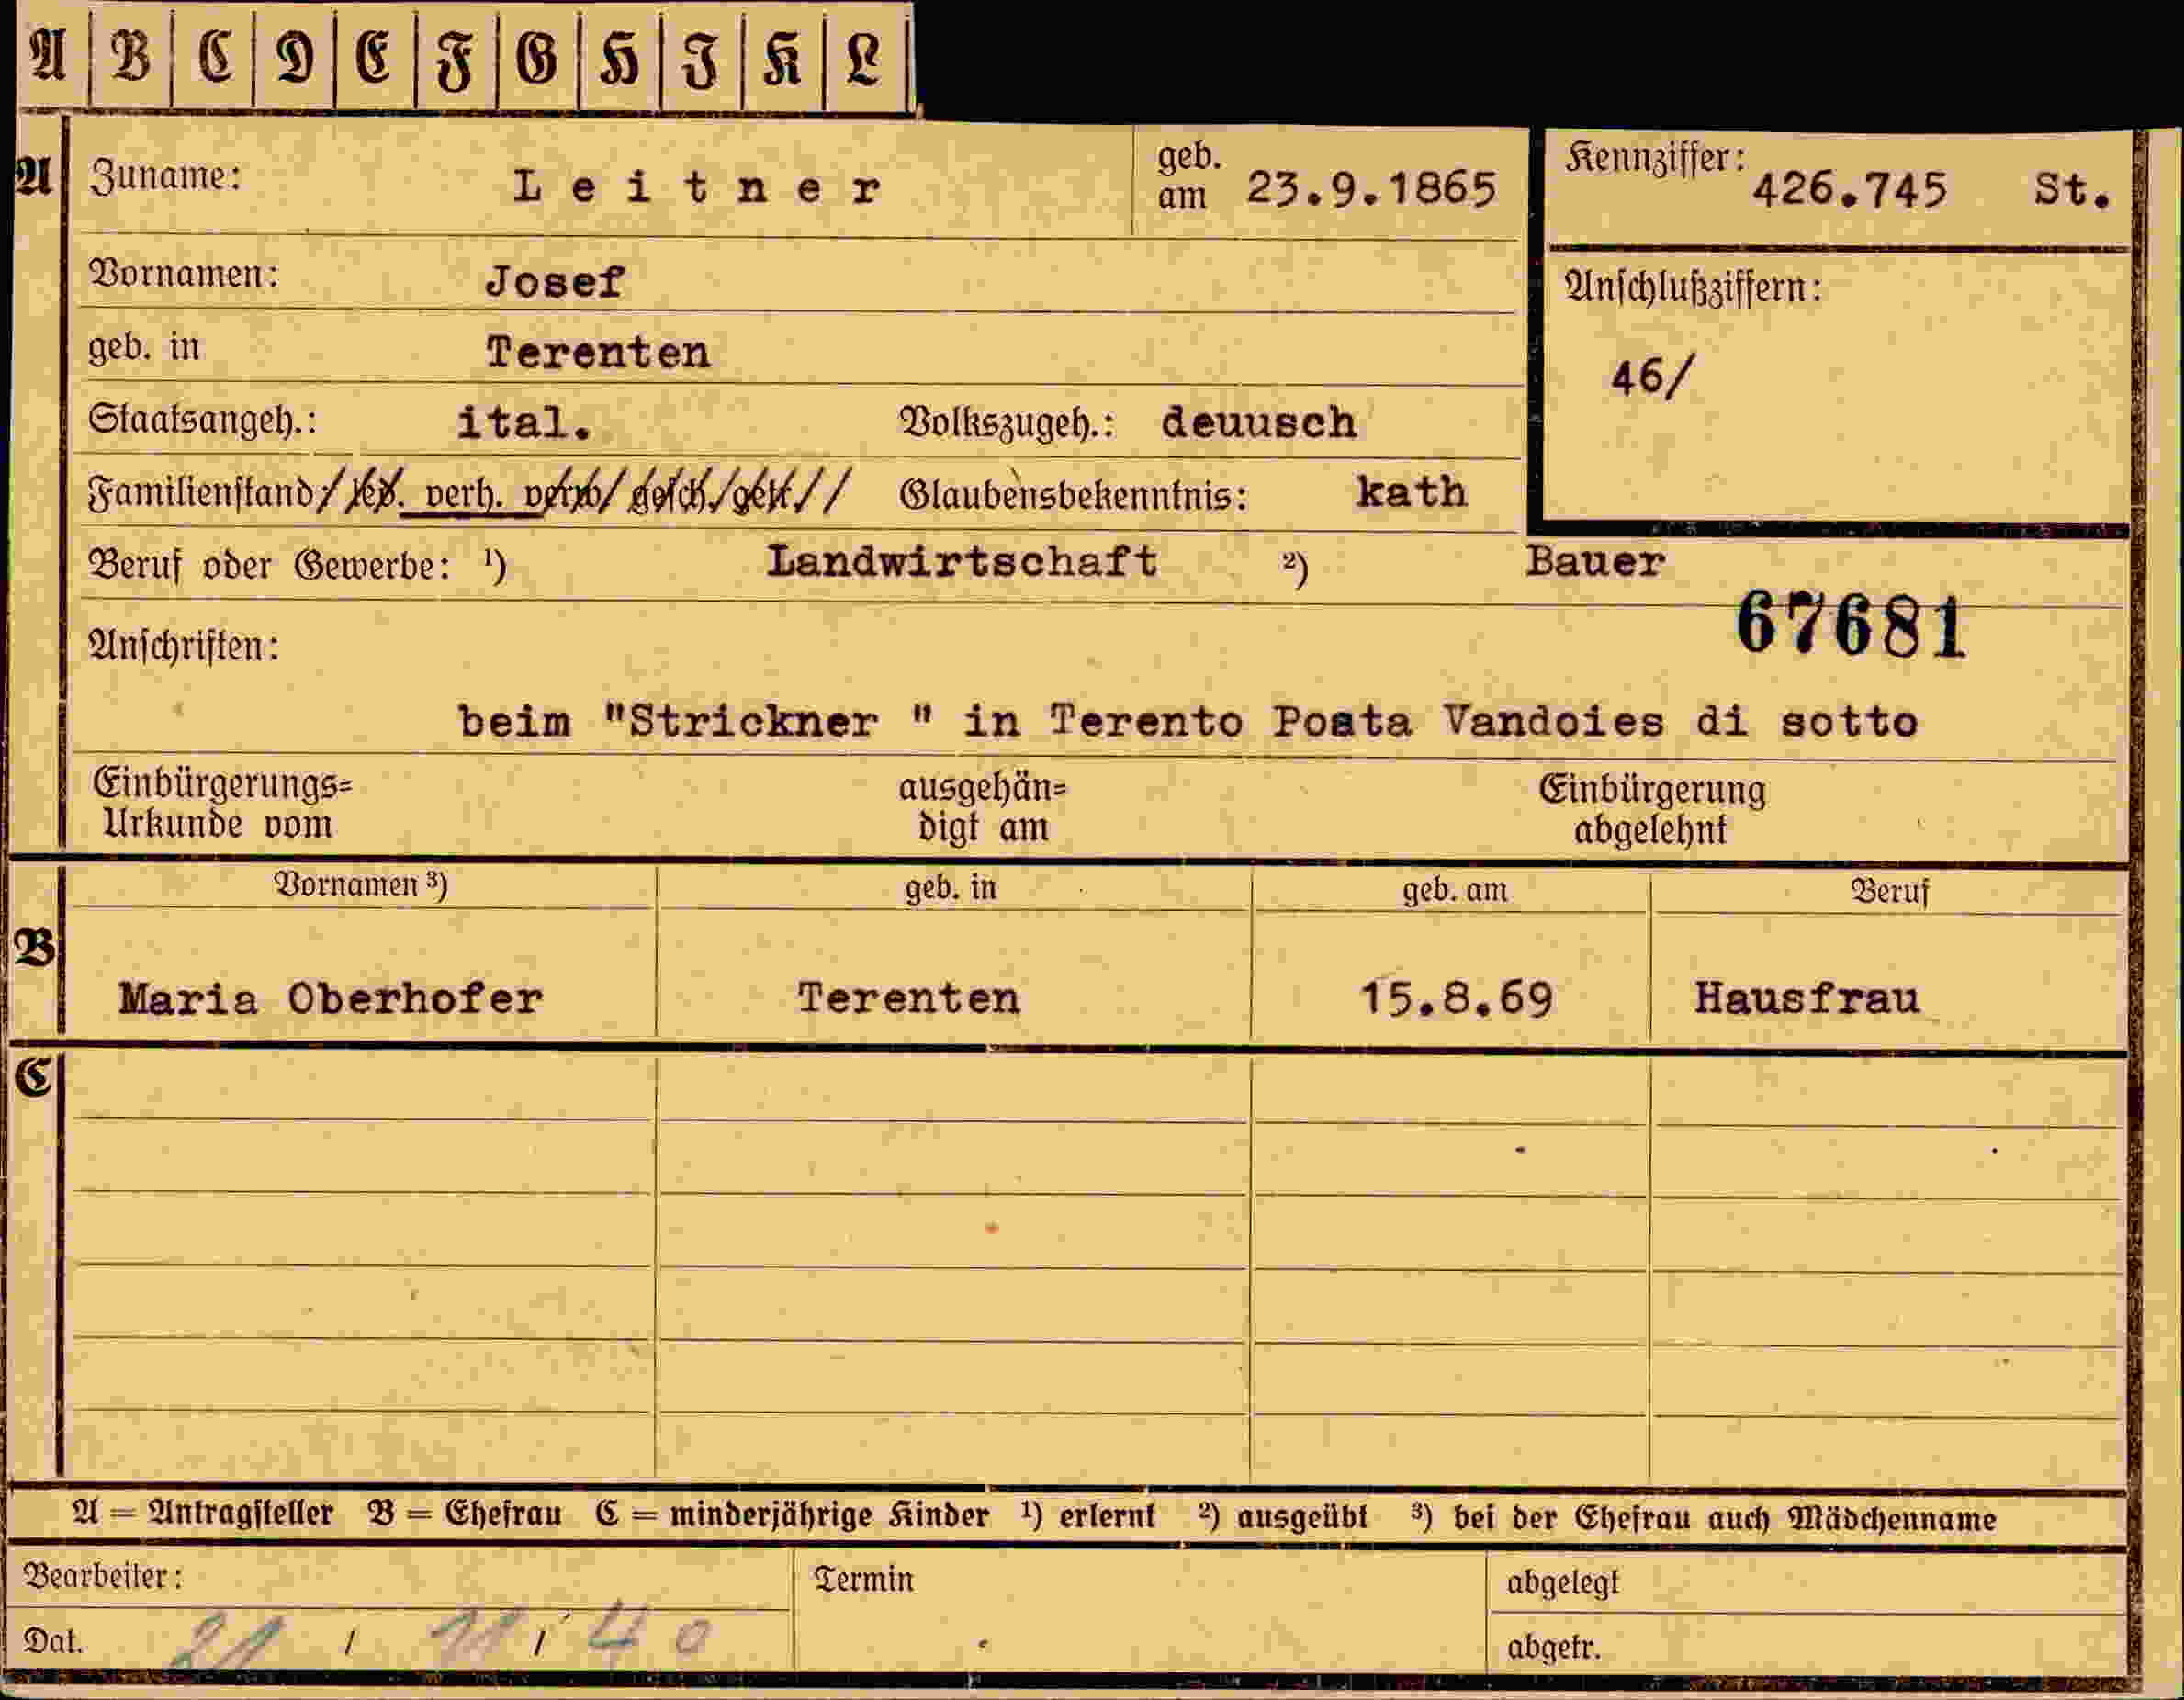 A B C D E F G H I K L
A Zuname: Leitner geb. am 23.9.1865 Kennziffer: 426.745 St.
Vornamen: Josef Anschlußziffern:
geb. in Terenten 46/
Staatsangeh.: ital. Volkszugeh.: deuusch
Familienstand: led. verh. verw. gesch. getr. Glaubensbekenntnis: kath
Beruf oder Gewerbe: ¹) Landwirtschaft ²) Bauer
67681
Anschriften:
beim "Strickner " in Terento Posta Vandoies di sotto
Einbürgerungs= ausgehän= Einbürgerung
Urkunde vom digt am abgelehnt
Vornamen ³) geb. in geb. am Beruf
B
Maria Oberhofer Terenten 15.8.69 Hausfrau
C
A = Antragsteller B = Ehefrau C = minderjährige Kinder ¹) erlernt ²) ausgeübt ³) bei der Ehefrau auch Mädchenname
Bearbeiter: Termin abgelegt
Dat. 21 / 11 / 40 abgetr.